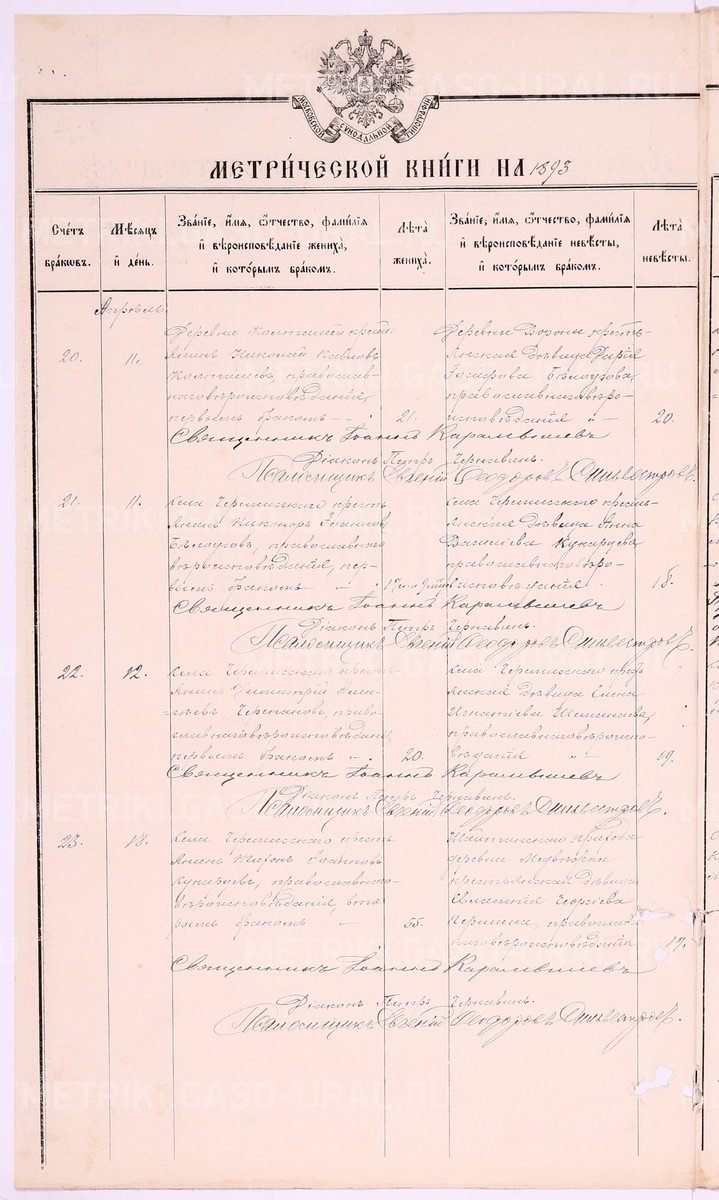 МОСКОВСКОЙ СѴНОДАЛЬНОЙ ТИПОГРАФІИ
МЕТРИ́ЧЕСКОЙ КНИ́ГИ НА 1893
Сче́тъ бра́кωвъ.
Мѣ́сяцъ и҆ де́нь.
Зва́нїе, и҆́мя, ѻ҆́тчество, фами́лїя и҆ вѣроисповѣ́данїе жениха̀, и҆ кото́рымъ бра́комъ.
Лѣ́та жениха̀.
Зва́нїе, и҆́мя, ѻ҆́тчество, фами́лїя и҆ вѣроисповѣ́данїе невѣ́сты, и҆ кото́рымъ бра́комъ.
Лѣ́та невѣ́сты.
Апрѣль.
20.
11.
Деревни крестьянинъ Николай Павловъ
православнаго вѣроисповѣданія,
первымъ бракомъ
21.
Деревни крестьянская дѣвица Дарія
Бѣлоусова,
православнаго вѣроисповѣданія
20.
Священникъ Іоаннъ Карамышевъ
Діаконъ Петръ Чернавинъ.
Псаломщикъ Евгеній Ѳеодоровъ Сильвестровъ.
21.
11.
Села крестьянинъ Никаноръ Іоанновъ
Бѣлоусовъ, православнаго
вѣроисповѣданія, первымъ бракомъ
17
Села крестьянская дѣвица Анна
Василіева Кукарцева,
православнаго вѣроисповѣданія
18.
Священникъ Іоаннъ Карамышевъ
Діаконъ Петръ Чернавинъ.
Псаломщикъ Евгеній Ѳеодоровъ Сильвестровъ.
22.
12.
Села крестьянинъ Димитрій
Черепановъ, православнаго вѣроисповѣданія,
первымъ бракомъ
20.
Села крестьянская дѣвица
Игнатіева
православнаго вѣроисповѣданія
19.
Священникъ Іоаннъ Карамышевъ
Діаконъ Петръ Чернавинъ.
Псаломщикъ Евгеній Ѳеодоровъ Сильвестровъ.
23.
18.
Села крестьянинъ
Кукарцевъ, православнаго
вѣроисповѣданія, вторымъ бракомъ
55.
прихода
деревни
крестьянская дѣвица
Георгіева
православнаго вѣроисповѣданія
17.
Священникъ Іоаннъ Карамышевъ
Діаконъ Петръ Чернавинъ.
Псаломщикъ Евгеній Ѳеодоровъ Сильвестровъ.
METRIKI.GASO-URAL.RU